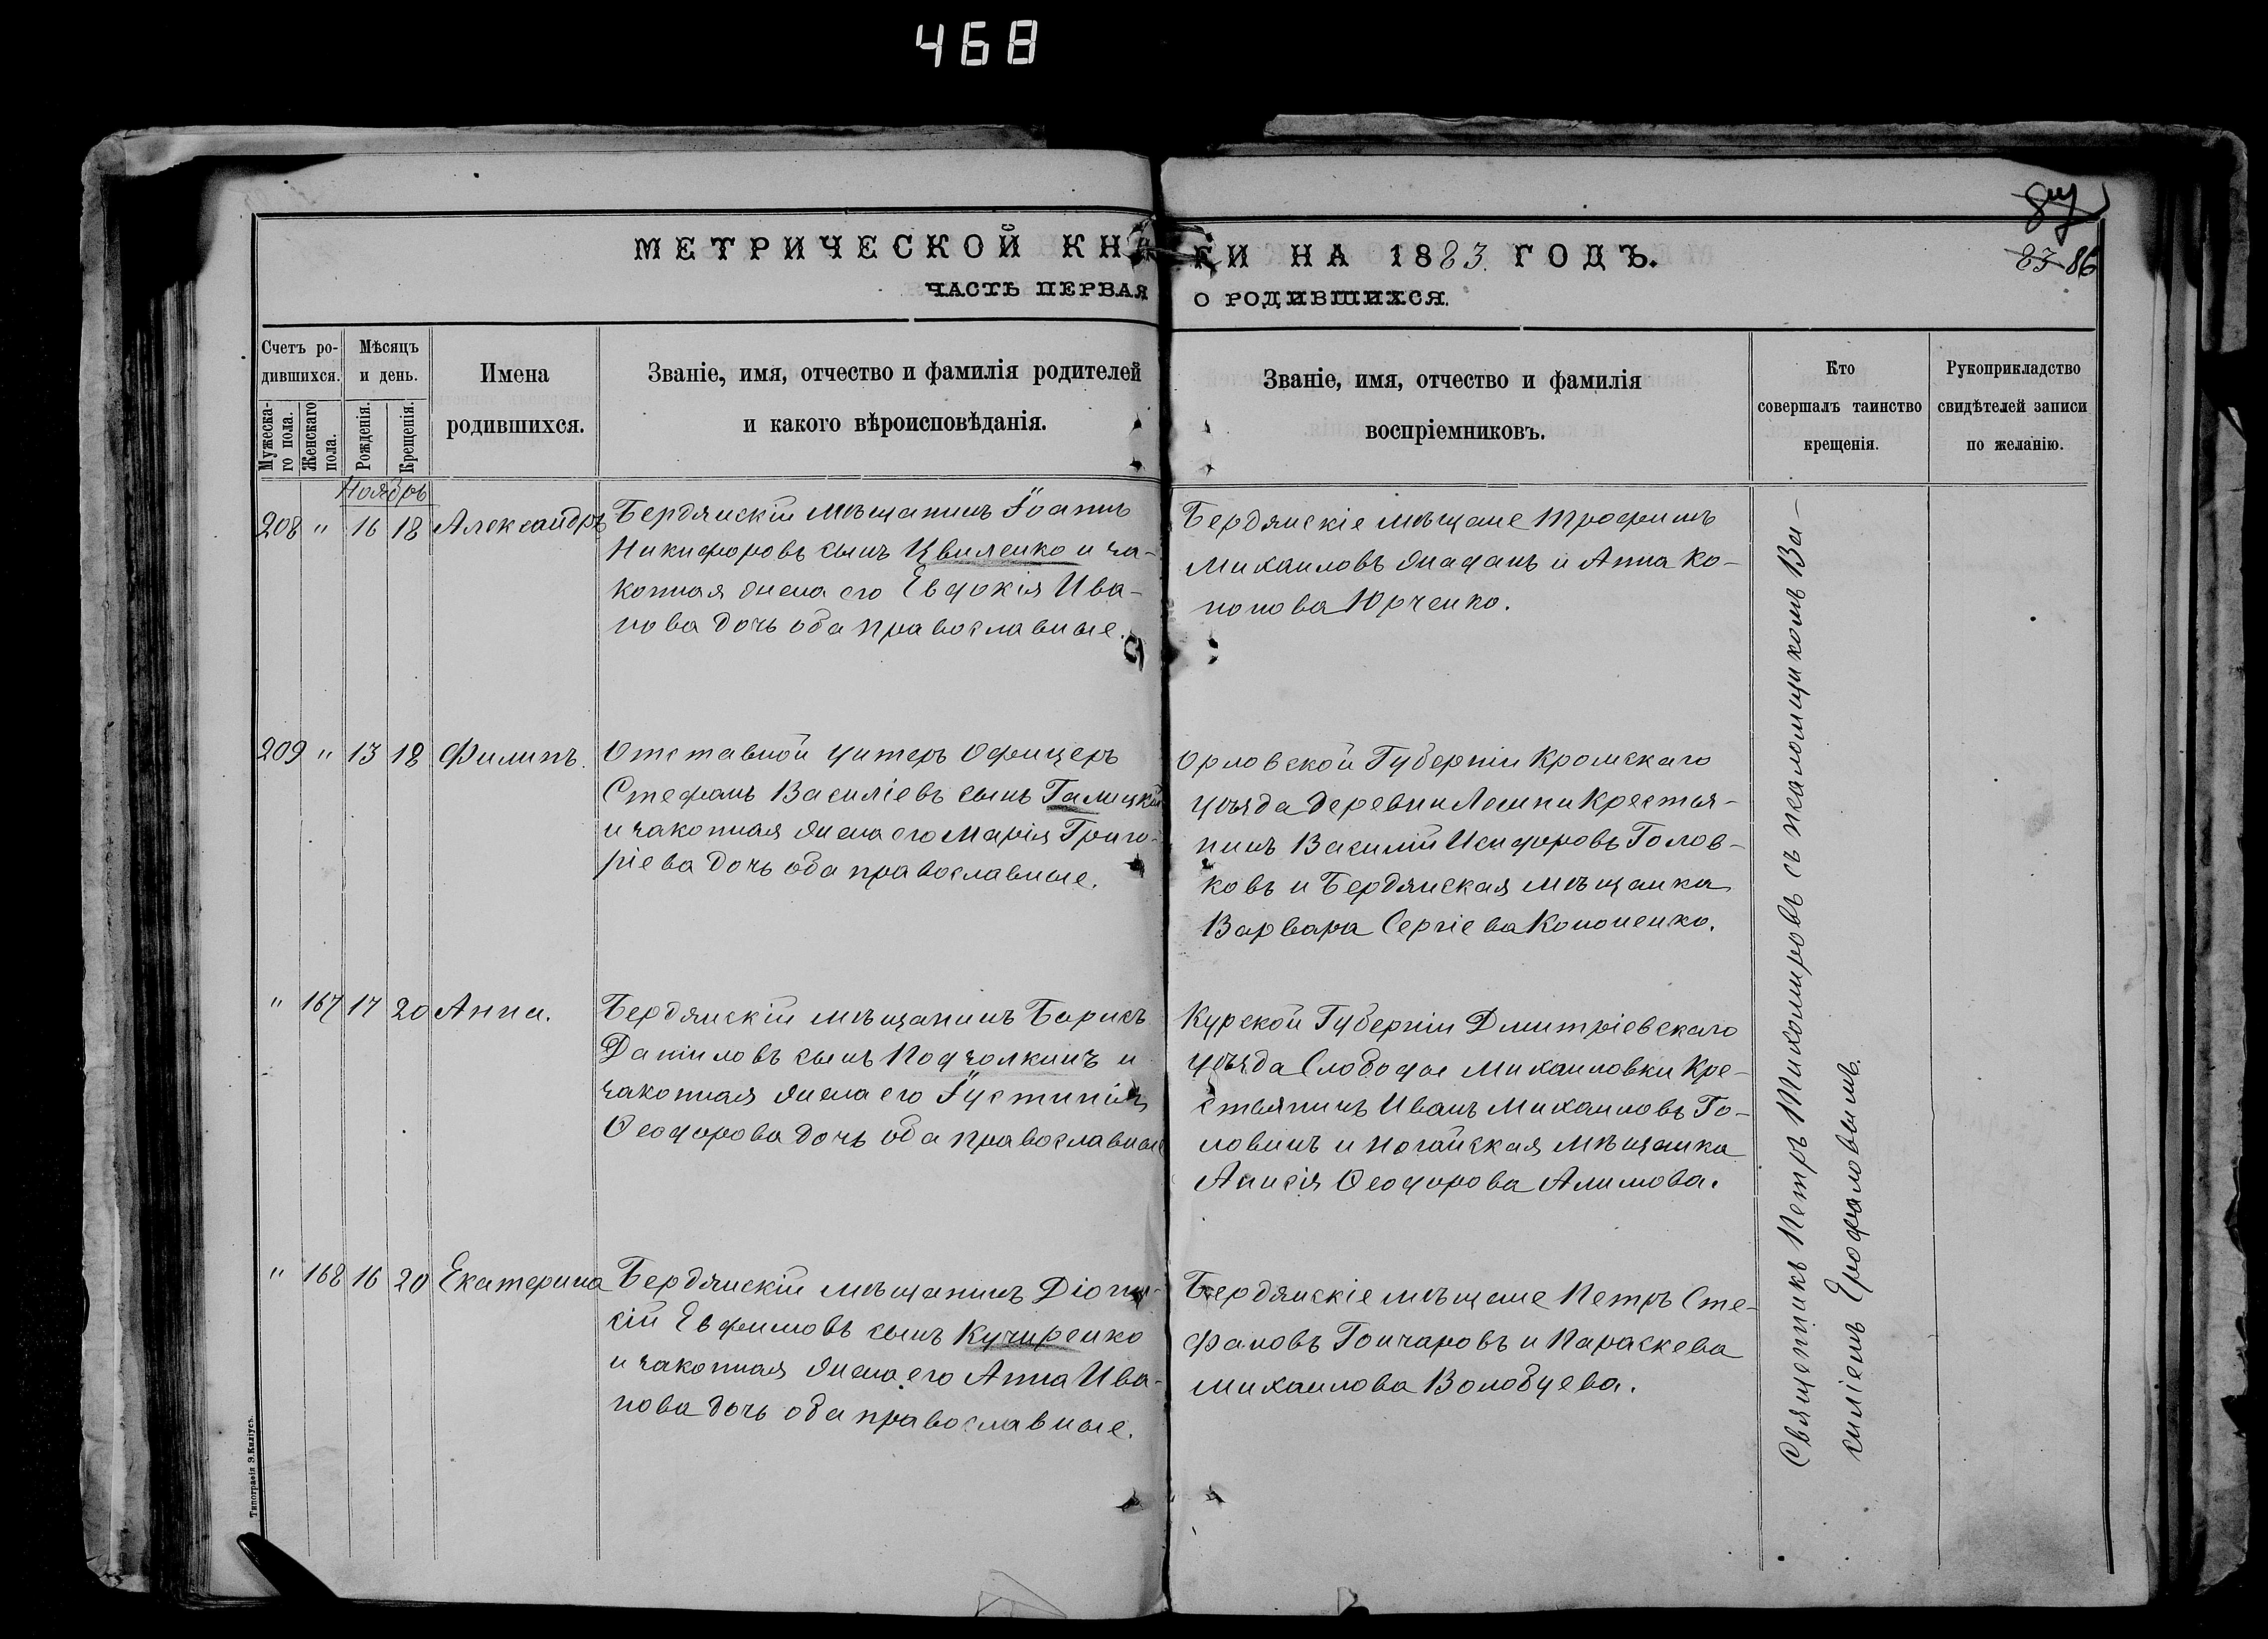 468
84
83 86
МЕТРИЧЕСКОЙ КНИГИ НА 1883. ГОДЪ.
ЧАСТЬ ПЕРВАЯ О РОДИВШИХСЯ.
Счетъ ро-
дившихся.
Мужеска-
го пола.
Женскаго
пола.
Мѣсяцъ
и день.
Рожденія.
Крещенія.
Имена
родившихся.
Званіе, имя, отчество и фамилія родителей
и какого вѣроисповѣданія.
Званіе, имя, отчество и фамилія
воспріемниковъ.
Кто
совершалъ таинство
крещенія.
Рукоприкладство
свидѣтелей записи
по желанію.
Ноябрь
208 " 16 18 Александръ
Бердянскій мѣщанинъ Іоаннъ
Никифоровъ сынъ Цвиленко и за-
конная жена его Евдокія Ива-
нова дочь оба православные.
Бердянскіе мѣщане Трофимъ
Михаиловъ Жаданъ и Анна Ко-
нонова Юрченко.
209 " 13 18 Филипъ.
Отставной Унтеръ Офицеръ
Стефанъ Василіевъ сынъ Галицкій
и законная жена его Марія Григо-
ріева дочь оба православные.
Орловской Губерніи Кромскаго
уѣзда деревни Лешни Крестья-
нинъ Василій Никифоровъ Голов-
ковъ и Бердянская мѣщанка
Варвара Сергіева Кононенко.
" 167 17 20 Анна.
Бердянскій мѣщанинъ Борисъ
Даніиловъ сынъ Подзолкинъ и
законная жена его Іустинія
Ѳеодорова дочь оба православные
Курской Губерніи Дмитріевскаго
уѣзда Слободы Михаиловки Кре-
стьянинъ Иванъ Михаиловъ Го-
ловинъ и Ногайская мѣщанка
Анисія Ѳеодорова Алимова.
" 168 16 20 Екатерина
Бердянскій мѣщанинъ Діони-
сій Евфимовъ сынъ Кучиренко
и законная жена его Анна Ива-
нова дочь оба православные.
Бердянскіе мѣщане Петръ Сте-
фановъ Гончаровъ и Параскева
Михаилова Воловуева.
Священникъ Петръ Тихомировъ съ псаломщикомъ Ва-
силіемъ Ерофаловымъ.
Типографія Э.Киліусъ.